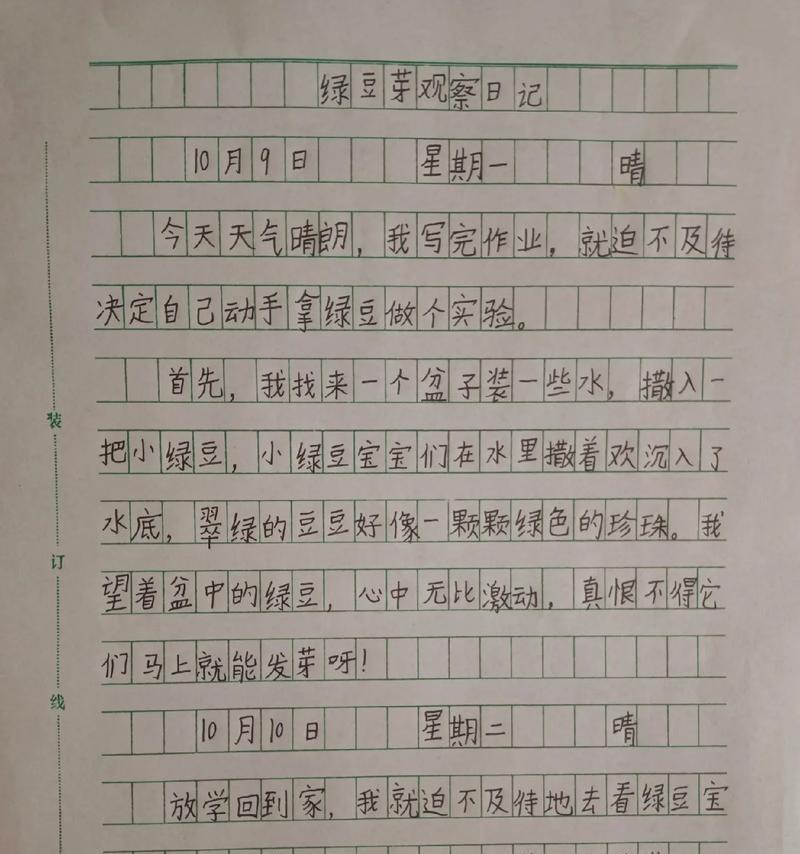 绿豆芽观察日记
10月9日 星期一 晴
今天天气晴朗，我写完作业，就迫不及待
决定自己动手拿绿豆做个实验。
首先，我找来一个盆子装一些水，撒入一
把小绿豆，小绿豆宝宝们在水里撒着欢沉入了
水底，翠绿的豆豆好像一颗颗绿色的珍珠。我
望着盆中的绿豆，心中无比激动，真恨不得它
们马上就能发芽呀！
10月10日 星期二 晴
放学回到家，我就迫不及待地去看绿豆宝
装
订
线